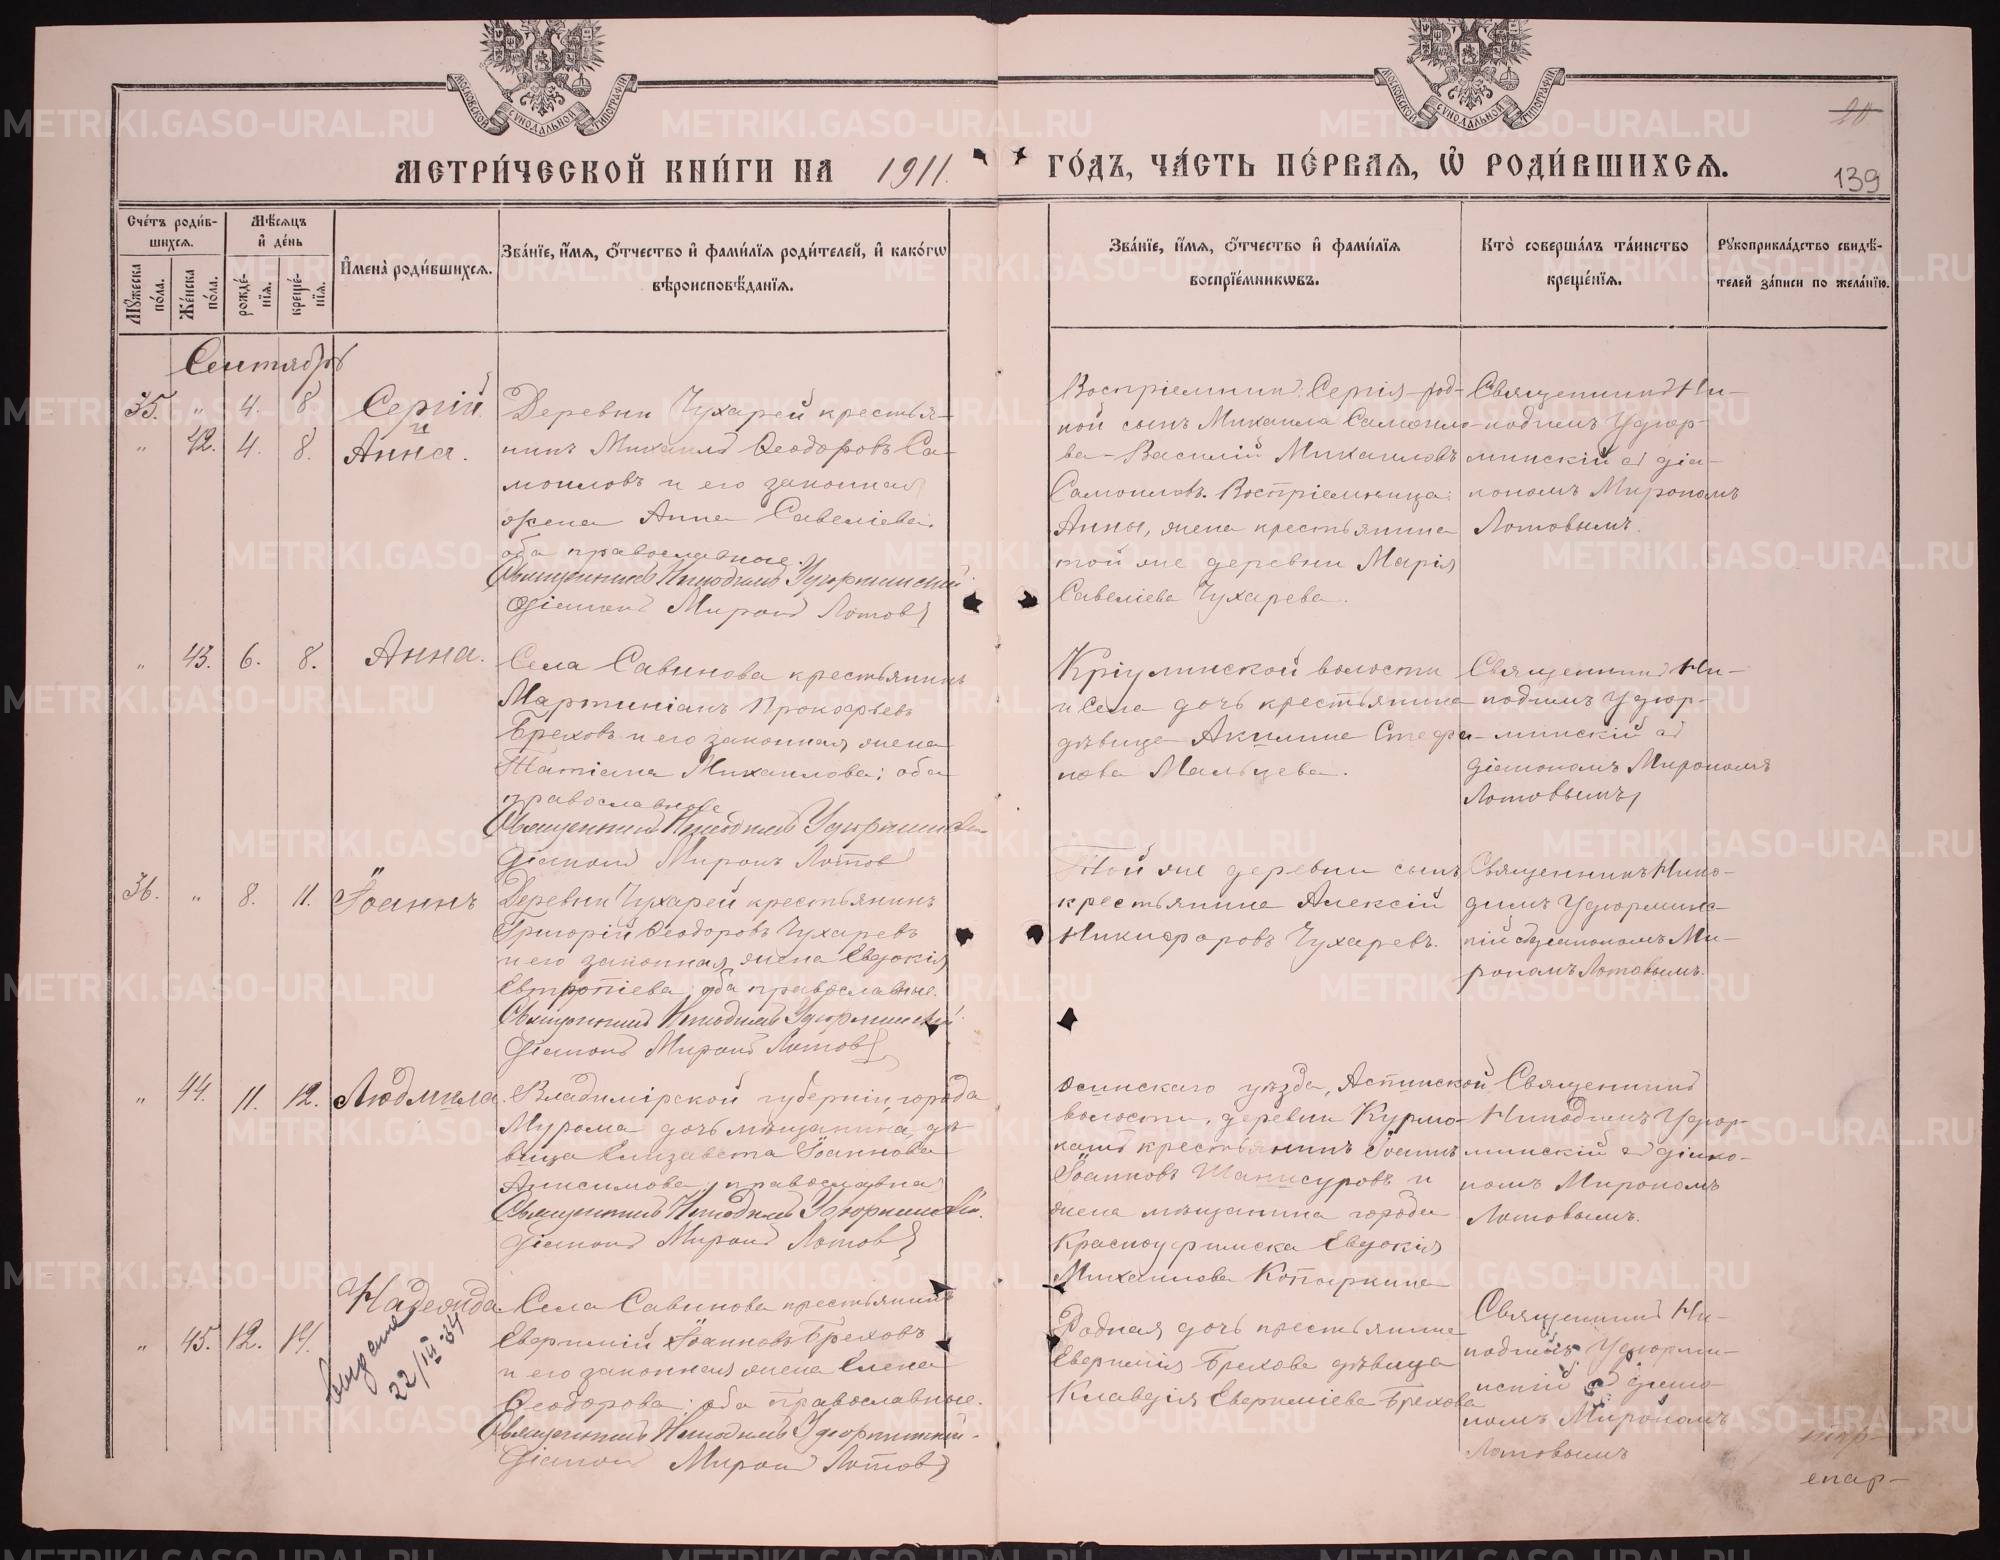 МОСКОВСКОЙ СѴНОДАЛЬНОЙ ТИПОГРАФІИ
МОСКОВСКОЙ СѴНОДАЛЬНОЙ ТИПОГРАФІИ
20
МЕТРИ́ЧЕСКОЙ КНИ́ГИ НА 1911. ГО́ДЪ, ЧА́СТЬ ПЕ́РВАѦ, Ѡ҆ РОДИ́ВШИХСѦ.
139
Сче́тъ роди́в-
шихсѧ.
Мѣ́сѧцъ
и҆ де́нь
Мꙋ́жеска
по́ла.
Же́нска
по́ла.
рожде́-
нїѧ.
креще́-
нїѧ.
И҆мена̀ роди́вшихсѧ.
Зва́нїе, и҆́мѧ, ѻ҆́тчество и҆ фами́лїѧ роди́телей, и҆ како́гѡ
вѣроисповѣ́данїѧ.
Зва́нїе, и҆́мѧ, ѻ҆́тчество и҆ фами́лїѧ
воспрїе́мникѡвъ.
Кто̀ соверша́лъ та́инство
креще́нїѧ.
Рꙋкоприкла́дство свидѣ́-
телей за́писи по жела́нїю.
Сентябрь
35. „ 4. 8 Сергій
и
„ 42. 4. 8. Анна.
Деревни Чухарей крестья-
нинъ Михаилъ Ѳеодоровъ Са-
моиловъ и его законная
жена Анна Савеліева,
оба православные.
Священникъ Никодимъ Удюрминскій
Діаконъ Миронъ Лотовъ
Воспріемникъ Сергія – род-
ной сынъ Михаила Самоило-
ва – Василій Михаиловъ
Самоиловъ. Воспріемница
Анны, жена крестьянина
той же деревни Марія
Савеліева Чухарева.
Священникъ Ни-
кодимъ Удюр-
минскій съ діа-
кономъ Мирономъ
Лотовымъ.
„ 43. 6. 8. Анна.
Села Савинова крестьянинъ
Мартиніанъ Прокофьевъ
Бреховъ и его законная жена
Татіана Михаилова; оба
православные
Священникъ Никодимъ Удюрминскій
Діаконъ Миронъ Лотовъ
Кріулинской волости
и села дочь крестьянина
дѣвица Акилина Стефа-
нова Мальцева.
Священникъ Ни-
кодимъ Удюр-
минскій съ
діакономъ Мирономъ
Лотовымъ
36. „ 8. 11. Іоаннъ
Деревни Чухарей крестьянинъ
Григорій Ѳеодоровъ Чухаревъ
и его законная жена Евдокія
Евтропіева; оба православные.
Священникъ Никодимъ Удюрминскій
Діаконъ Миронъ Лотовъ
Той же деревни сынъ
крестьянина Алексій
Никифоровъ Чухаревъ.
Священникъ Нико-
димъ Удюрминс-
кій съ діакономъ Ми-
рономъ Лотовымъ.
„ 44. 11. 12. Людмила.
Владимірской губерніи, города
Мурома дочь мѣщанина, дѣ-
вица Елизавета Іоаннова
Анисимова; православная
Священникъ Никодимъ Удюрминскій.
Діаконъ Миронъ Лотовъ
Осинскаго уѣзда, Аспинской
волости, деревни Курмо-
кашъ крестьянинъ Іоаннъ
Іоанновъ Шанисуровъ и
жена мѣщанина города
Красноуфимска Евдокія
Михаилова Копыркина
Священникъ
Никодимъ Удюр-
минскій съ діако-
номъ Мирономъ
Лотовымъ.
„ 45. 12. 14. Надежда
22/III-34
Села Савинова крестьянинъ
Евфимій Іоанновъ Бреховъ
и его законная жена Елена
Ѳеодорова; оба православные.
Священникъ Никодимъ Удюрминскій
Діаконъ Миронъ Лотовъ
Родная дочь крестьянина
Евфимія Брехова дѣвица
Клавдія Евфиміева Брехова
Священникъ Ни-
кодимъ Удюрми-
нскій съ діако-
номъ Мирономъ
Лотовымъ
епар-